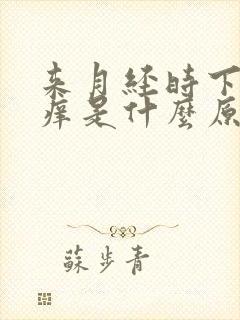 来月经时下
痒是什麼原
蘇步青